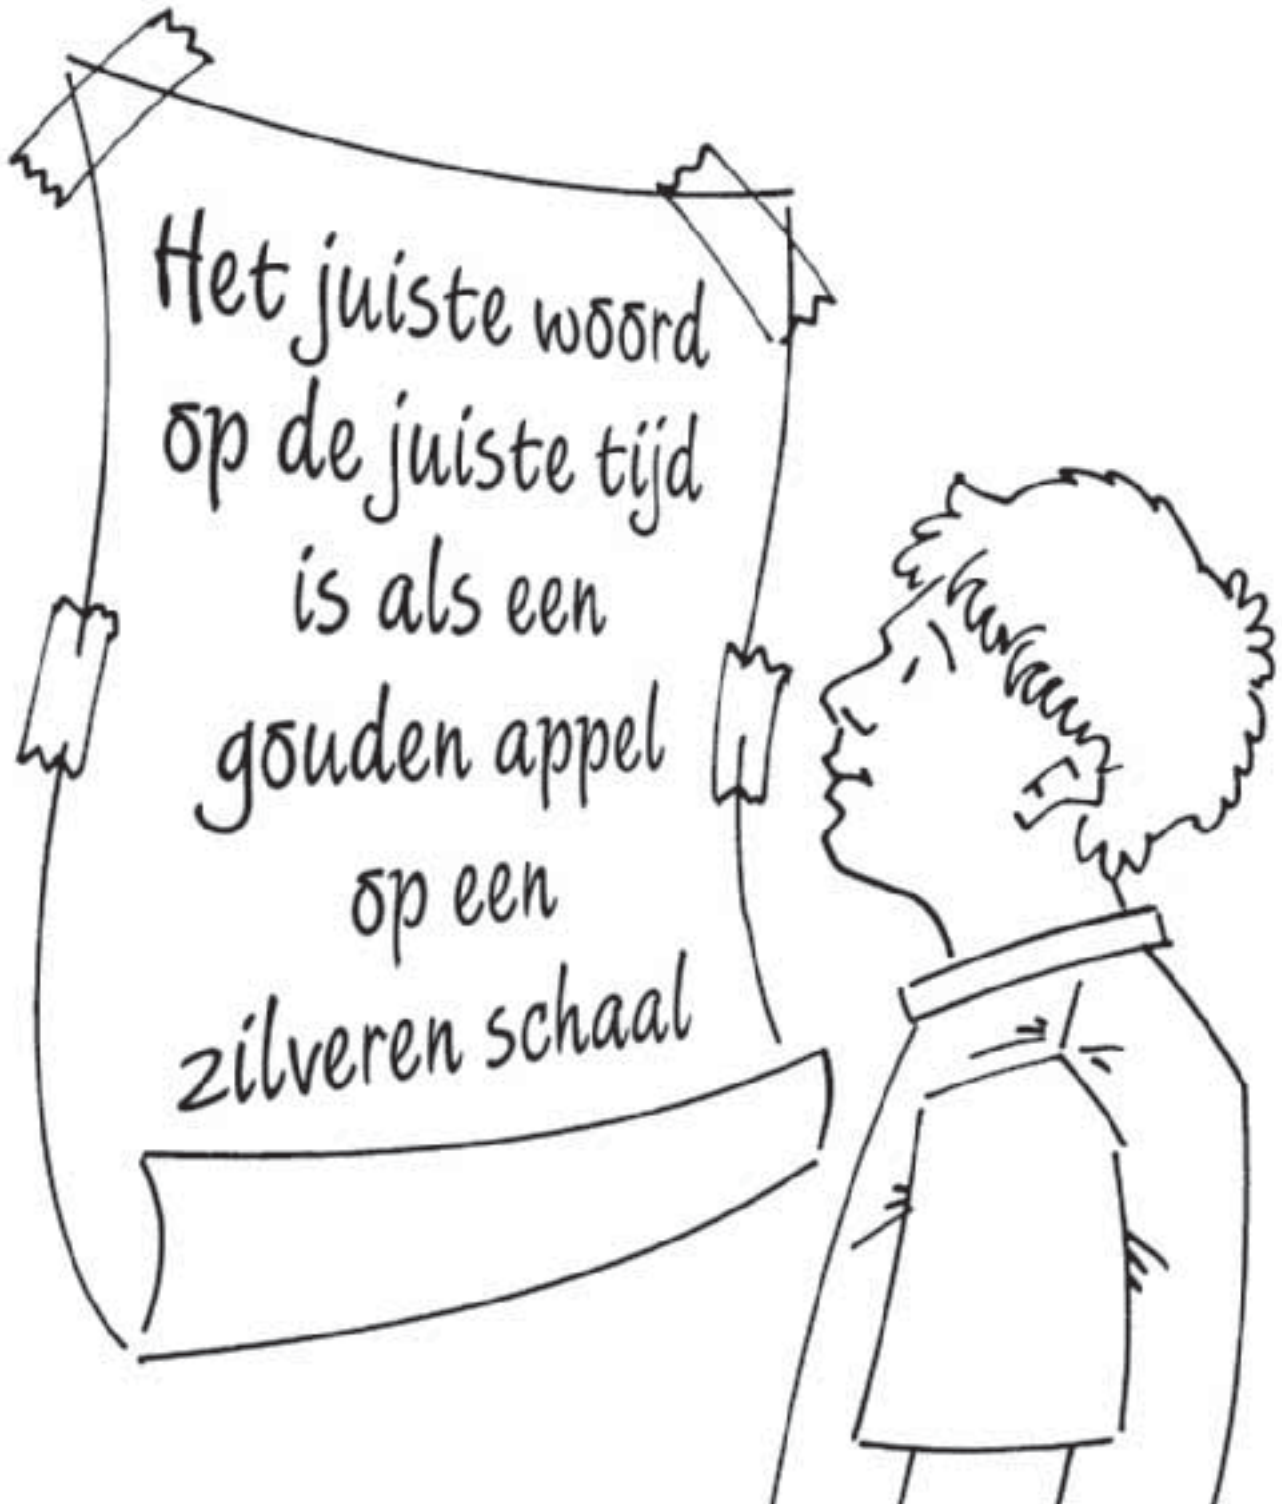 Het juiste woord
op de juiste tijd
is als een
gouden appel
op een
zilveren schaal